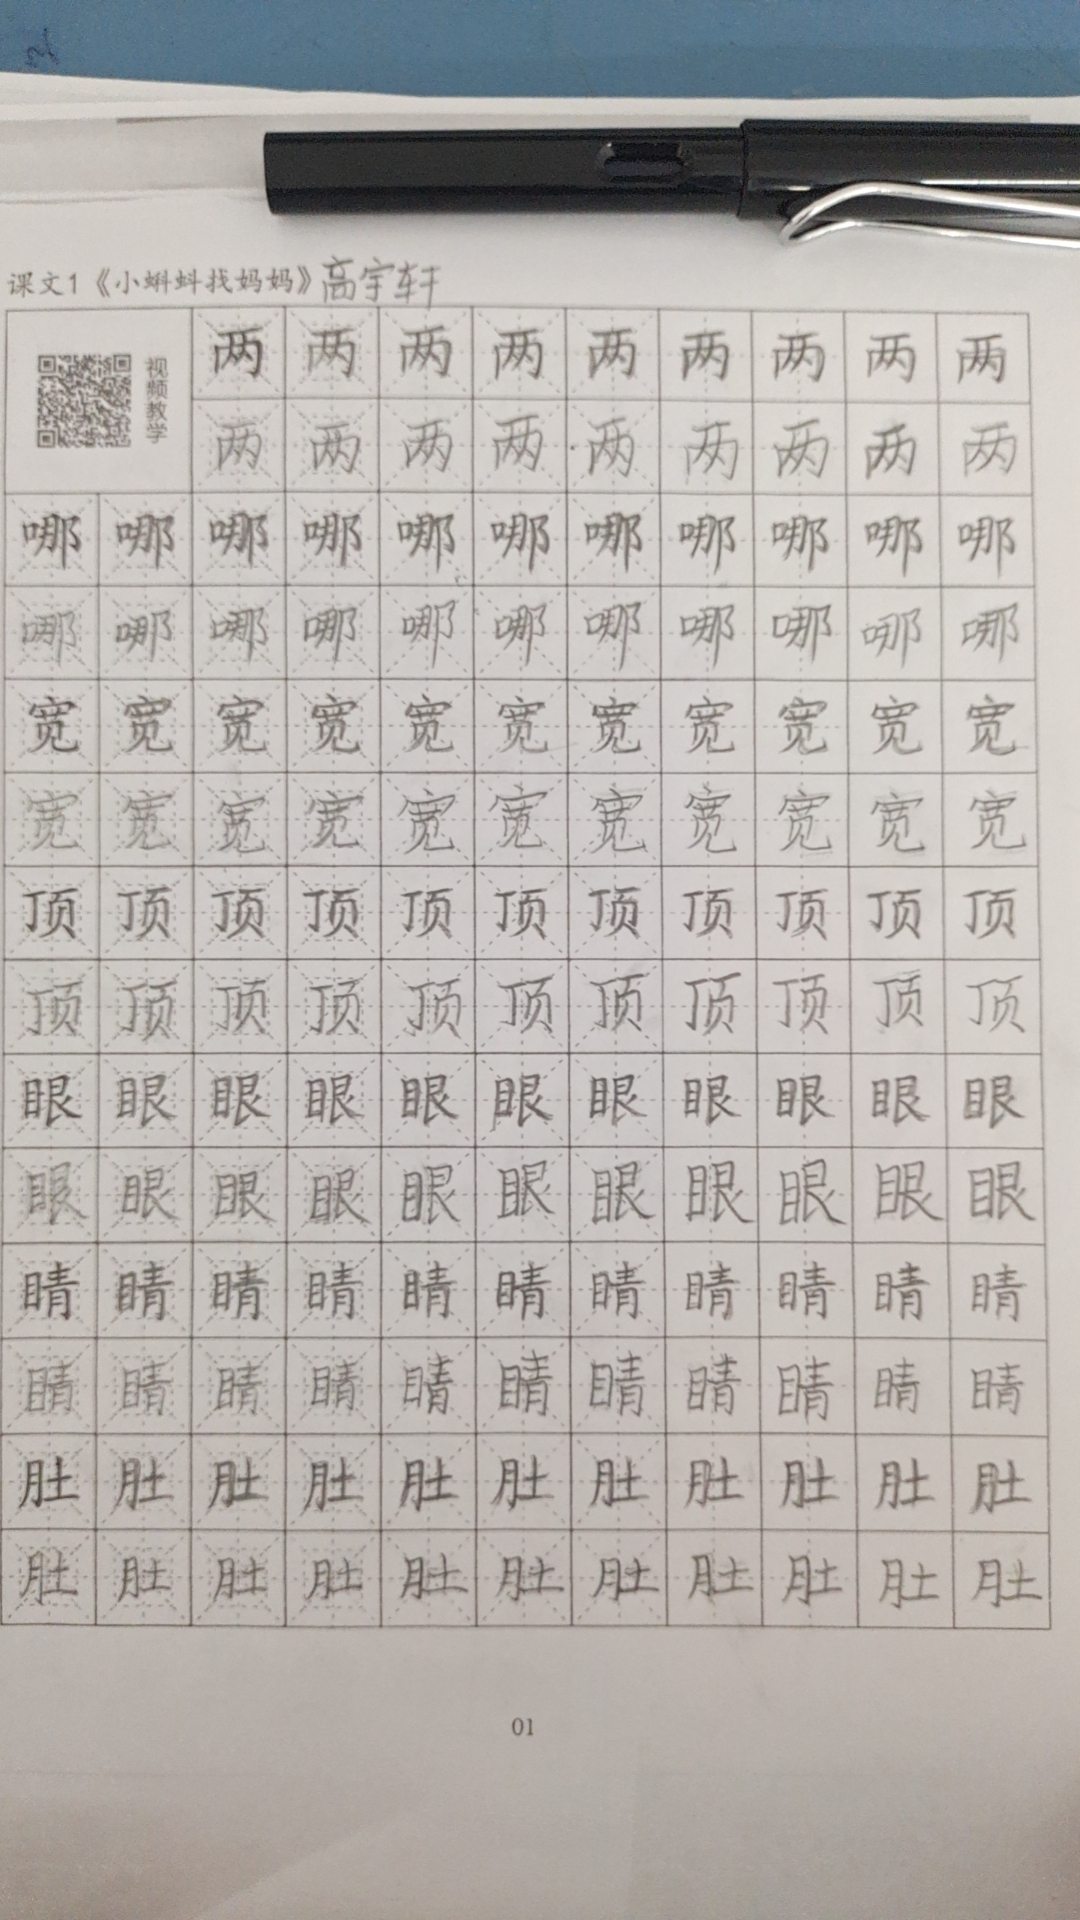 课文1《小蝌蚪找妈妈》高宇轩
视频教学
两两两两两两两两两
两两两两两两两两两
哪哪哪哪哪哪哪哪哪哪哪
哪哪哪哪哪哪哪哪哪哪哪
宽宽宽宽宽宽宽宽宽宽宽
宽宽宽宽宽宽宽宽宽宽宽
顶顶顶顶顶顶顶顶顶顶顶
顶顶顶顶顶顶顶顶顶顶顶
眼眼眼眼眼眼眼眼眼眼眼
眼眼眼眼眼眼眼眼眼眼眼
睛睛睛睛睛睛睛睛睛睛睛
睛睛睛睛睛睛睛睛睛睛睛
肚肚肚肚肚肚肚肚肚肚肚
肚肚肚肚肚肚肚肚肚肚肚
01